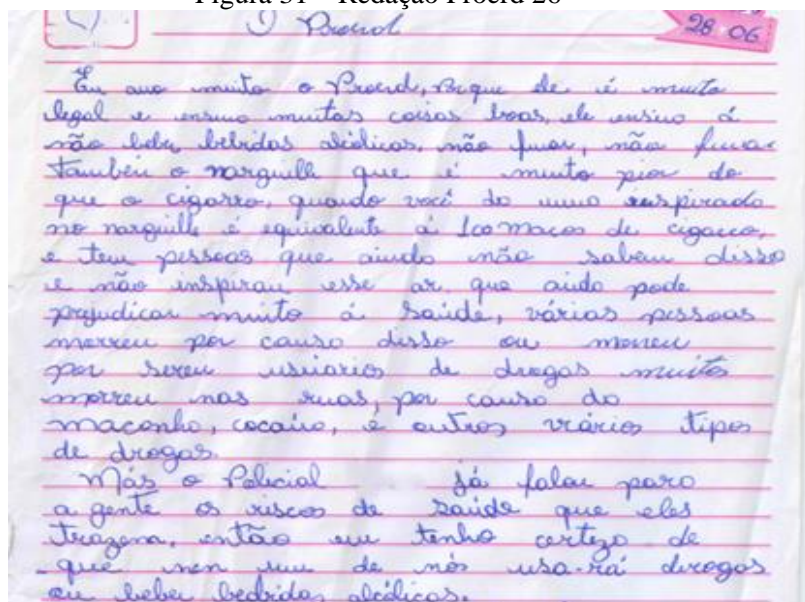 Figura 31 – Redação Proerd 26
O Proerd
28 06
Eu amo muito o Proerd, porque ele é muito
legal e ensina muitas coisas boas, ele ensina à
não beber bebidas alcólicas, não fumar, não fumar
também o narguille que é muito pior do
que o cigarro, quando você da uma inspirada
no narguille é equivalente à 100 maços de cigarro,
e tem pessoas que ainda não sabem disso
e não inspiram esse ar que ainda pode
prejudicar muito à saúde, várias pessoas
morrem por causa disso ou morrem
por serem usuarios de drogas muitos
morrem nas ruas, por causa da
maconha, cocaína, e outros vários tipos
de drogas.
Más o Policial já falou para
a gente os riscos de saúde que eles
trazem, então eu tenho certeza de
que nem um de nós usa-rá drogas
ou beber bedridas alcólicas.